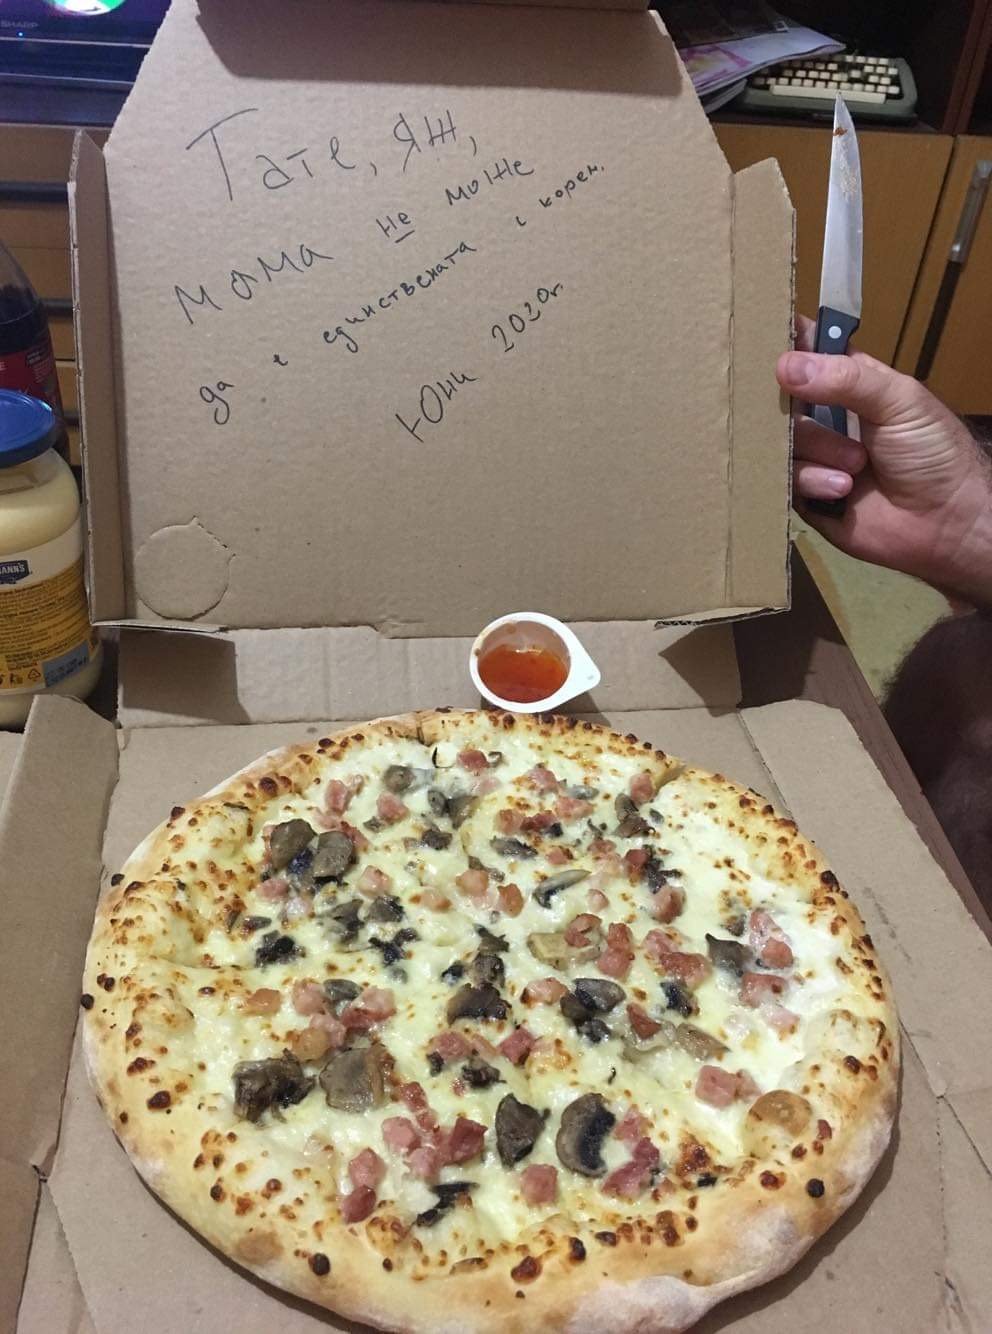 SHARP
Тате, яж,
мама не може
да е единствената с корем.
Юни 2020г.
ANN'S